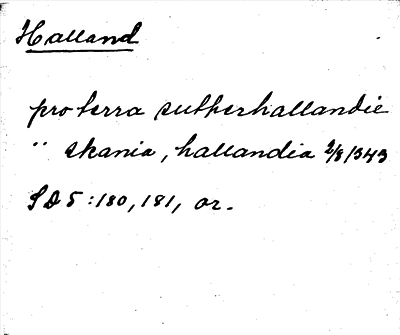 Halland
pro terra sutherhallandie
" skania, hallandia 2/8 1343
SD 5:180, 181, or.